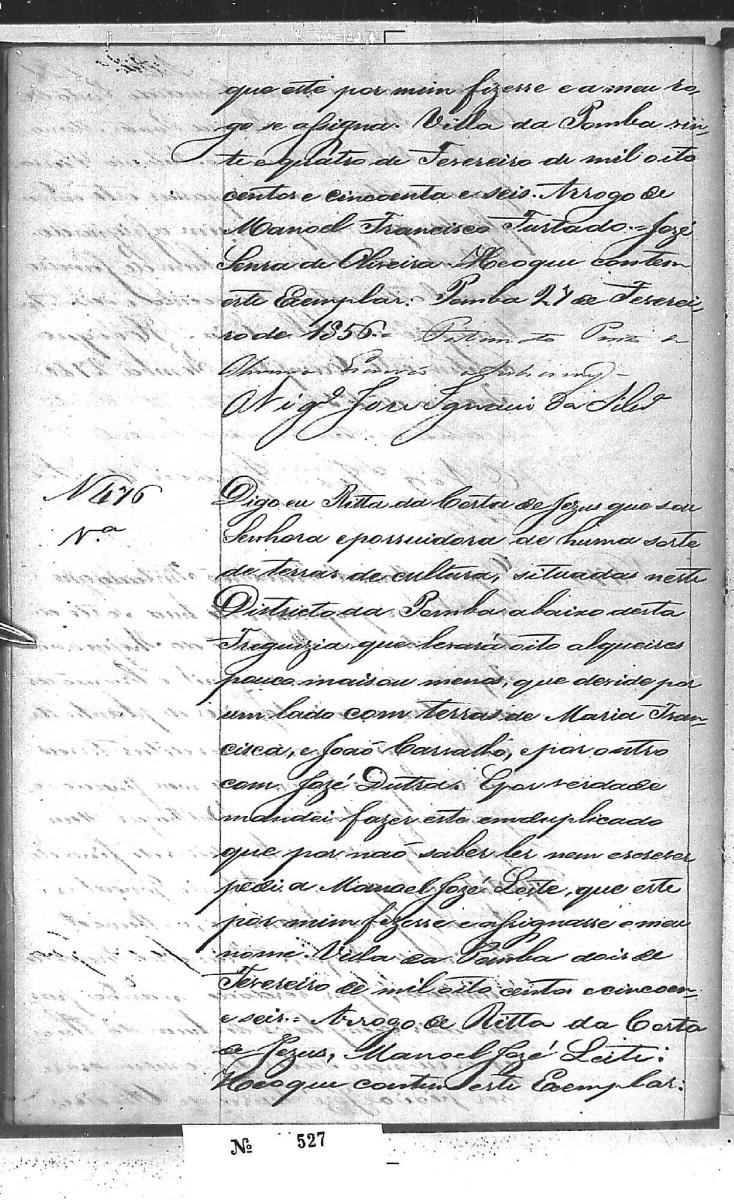 que este por mim fizesse e a meu ro-
go se assigna. Villa da Pomba vin-
te e quatro de Fevereiro de mil oito
centos e cincoenta e seis. Arrogo de
Manoel Francisco Furtado = José
de Oliveira = He o que contem
este Exemplar: Pomba 27 de Feverei-
ro de 1856.
O Vigº José Ignacio da Silvª
N 476
N.a
Digo eu Ritta da Costa de Jezus que sou
Senhora e possuidora de huma sorte
de terras de cultura, situadas neste
Districto da Pomba abaixo desta
Freguezia que levará oito alqueires
pouco mais ou menos, que devide por
um lado com terras de Maria Fran-
cisca, e João Carvalho, e por outro
com José Dutra. E por verdade
mandei fazer este em duplicado
que por não saber ler nem escrever
pedi a Manoel Jozé Leite, que este
por mim fizesse e assignasse o meu
nome. Villa da Pomba dois de
Fevereiro de mil oito centos e cincoen-
e seis = Arrogo de Ritta da Costa
de Jezus, Manoel Jozé Leite:
He o que contem este Exemplar:
Nº 527